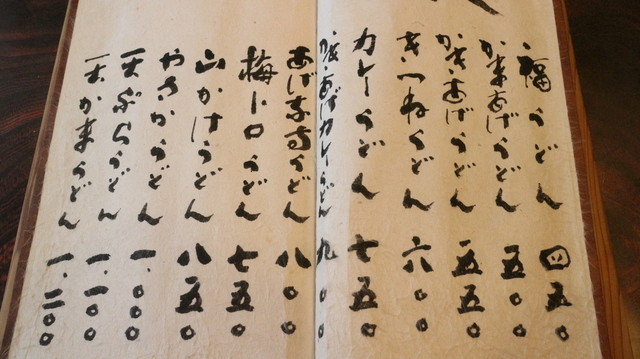 福うどん 四五〇
かまあげうどん 五〇〇
かきあげうどん 五五〇
きつねうどん 六〇〇
カレーうどん 七五〇
かきあげカレーうどん 九〇〇
あげなすうどん 八〇〇
梅トロうどん 七五〇
山かけうどん 八五〇
やさかうどん 一、〇〇〇
天ぷらうどん 一、一〇〇
天かまうどん 一、二〇〇